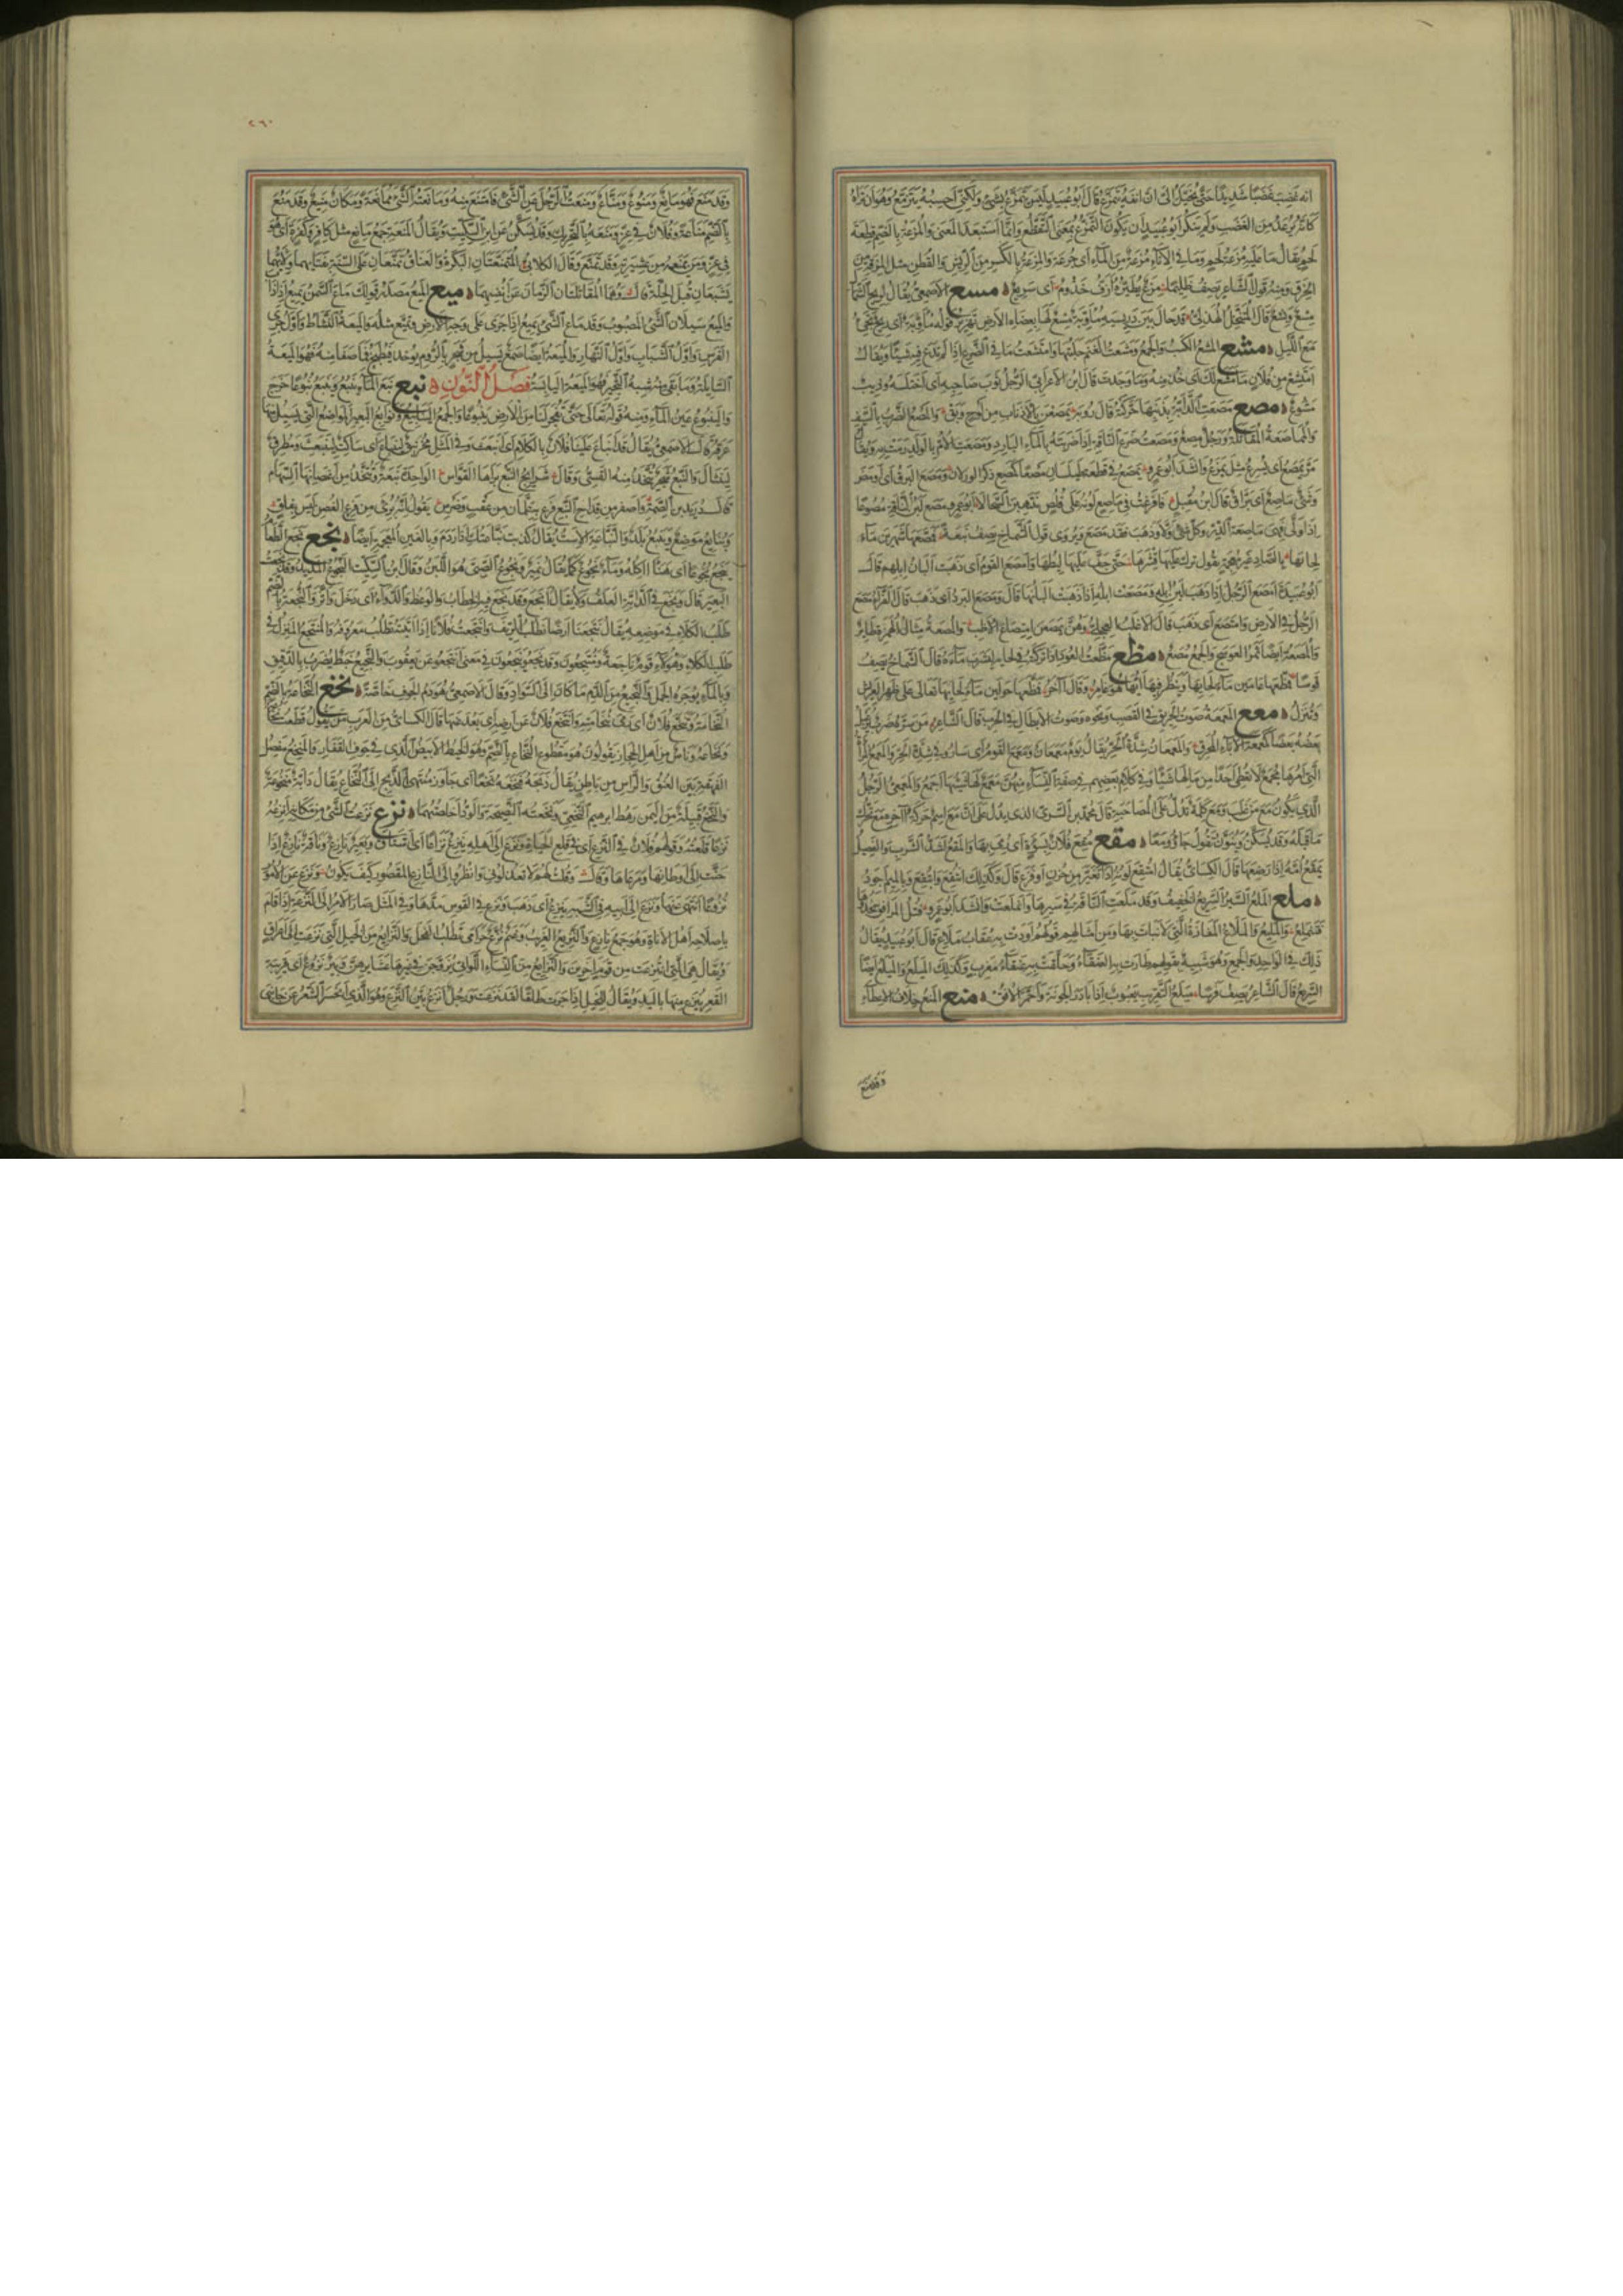 انه غضب غضبا شديدا حتى تخيل الى ان انفه يتمزع قال ابو عبيد ليس يتمزع بشىء ولكنى احسبه يترمع وهو ان تراه
كانه يرعد من الغضب ولم ينكر ابو عبيد ان يكون التمزع بمعنى التقطع وانما استبعد المعنى والمزعة بالضم قطعة
لحم يقال ما عليه مزعة لحم وما فى الاناء مزعة من الماء اى جرعة والمزعة بالكسر من الريش والقطن مثل المزقة من
الخرق ومنه قول الشاعر يصف ظليما مزع يطيره ازف خذوم اى سريع مسع الاصمعى يقال لريح الشمال
مسع ونسع قال المتنخل الهذلى قد حال بين دريسيه مؤوبة نسع لها بعضاه الارض تهزيز قوله مؤوبة اى ريح تجىء
مع الليل مشع المشع الكسب والجمع ومشعت الغنم حلبتها وامتشعت ما فى الضرع اذا لم تدع فيه شيئا ويقال
امتشع من فلان ما مشع لك اى خذ منه ما وجدت قال ابن الاعرابى امتشع الرجل ثوب صاحبه اى اختلسه وذئب
مشوع مصع مصعت الدابة بذنبها حركته قال رؤبة يمصعن بالاذناب من لوح وبق والمصع الضرب بالسيف
والمماصعة المقاتلة ورجل مصع ومصعت ضرع الناقة اذا ضربته بالماء البارد ومصعت الام بالولد رمت به ويقال
مر يمصع اى يسرع مثل يمزع وانشد ابو عمرو يمصع فى قطعة طيلسان مصعا كمصع ذكر الورلان ومصع البرق اى اومض
وشىء ماصع اى براق قال ابن مقبل فافرغت فى ماصع لونه على قلص ينتهبن السجالا ابو عمرو مصع لبن الناقة مصوعا
اذا ولى فهى ماصعة الدر وكل شىء ولى وذهب فقد مصع ويروى قول الشماخ يصف نبعة فمصعها شهرين ماء
لحائها بالصاد غير معجمة يقول ترك عليها قشرها حتى جف عليها ليطها وامصع القوم اى ذهبت البان ابلهم قال
ابو عبيدة امصع الرجل اذا ذهب لبن ابله ومصعت ابله اذا ذهبت البانها قال ومصع البرد اى ذهب قال الفراء مصع
الرجل فى الارض وامتصع اى ذهب قال الاغلب العجلى وهن يمصعن امتصاع الاظب والمصعة مثال الهمزة طائر
والمصعة ايضا ثمر العوسج والجمع مصع مظع مظعت العود اذا تركته فى لحائه ليشرب ماءه قال الشماخ يصف
قوسا فمظعها عامين ماء لحائها وينظر فيها ايها هو غامز وقال آخر فمظعها حولين ماء لحائها تعالى على ظهر العريش
وتنزل معع المعمعة صوت الحريق فى القصب ونحوه وصوت الابطال فى الحرب قال الشاعر من سره ضرب يرعبل
بعضه بعضا كمعمعة الاباء المحرق والمعمعان شدة الحر يقال يوم معمعان ومعمع القوم اى ساروا فى شدة الحر والمعمع المرأة
التى امرها مجمع لا تعطى احدا من مالها شيئا وفى كلام بعضهم فى صفة النساء منهن معمع لها شيئها اجمع والمعمعى الرجل
الذى يكون مع من غلب ومع كلمة تدل على المصاحبة قال محمد بن السرى الذى يدل على ان مع اسم حركة آخره مع تحرك
ما قبله وقد يسكن وينون تقول جاؤا معا مقع مقع فلان بسوءة اى رمى بها والمقع اشد الشرب والفصيل
يمقع امه اذا رضعها قال الكسائى يقال امتقع لونه اذا تغير من حزن او فزع قال وكذلك انتقع وابتقع وبالميم اجود
ملع الملع السير السريع الخفيف وقد ملعت الناقة فى سيرها وانملعت وانشد ابو عمرو فتل المرافق تحدوها
فتنملع والمليع والملاع المفازة التى لا نبات بها ومن امثالهم قولهم اودت به عقاب ملاع قال ابو عبيد يقال
ذلك فى الواحد والجمع وهو شبيه بقولهم طارت به العنقاء وحلقت به عنقاء مغرب وكذلك الميلع والميلع ايضا
السريع قال الشاعر يصف فرسا ميلع التقريب يعبوب اذا بادر الجونة واحمر الافق منع المنع خلاف الاعطاء
وقد منع
٢٦٠
وقد منع فهو مانع ومنوع ومناع ومنعت الرجل عن الشىء فامتنع منه ومانعته الشىء ممانعة ومكان منيع وقد منع
بالضم مناعة وفلان فى عز ومنعة بالتحريك وقد يسكن عن ابن السكيت ويقال المنعة جمع مانع مثل كافر وكفرة اى هو
فى عز ومن يمنعه من عشيرته وقد تمنع وقال الكلابى المتمنعتان البكرة والعناق تمنعان على السنة بفتائهما وانهما
تشبعان قبل الجلة قال وهما المقاتلتان الزمان عن انفسهما ميع الميع مصدر قولك ماع السمن يميع اذا ذاب
والميع سيلان الشىء المصبوب وقد ماع الشىء يميع اذا جرى على وجه الارض وتميع مثله والميعة النشاط واول جرى
الفرس واول الشباب واول النهار والميعة ايضا صمغ يسيل من شجر بالروم يوخذ فيطبخ فما صفا منه فهو الميعة
السائلة وما بقى منه شبه الثجير فهو الميعة اليابسة فصل النون نبع نبع الماء ينبع وينبع نبوعا خرج
والينبوع عين الماء ومنه قوله تعالى حتى تفجر لنا من الارض ينبوعا والجمع الينابيع ونوابع البعير المواضع التى يسيل منها
عرقه قال الاصمعى يقال قد انباع علينا فلان بالكلام اى انبعث وفى المثل مخرنبق لينباع اى ساكت لينبعث ومطرق
لينثال والنبع شجر تتخذ منه القسى وقال شرائج النبع براها القواس الواحدة نبعة وتتخذ من اغصانها السهام
قال دريد بن الصمة واصفر من قداح النبع فرع به علمان من عقب وضرس يقول انه برى من فرع الغصن ليس بفلق
وينابع موضع وينبع بلد والنباعة الاست يقال كذبت نباعتك اذا ردم وبالغين المعجمة ايضا نجع نجع الطعام
ينجع نجوعا اى هنا اكله وماء نجوع كما يقال نمير ونجوع الصبى هو اللبن وقال ابن السكيت النجوع المديد وقد نجعت
البعير قال ونجع فى الدابة العلف ولا يقال انجع وقد نجع فيه الخطاب والوعظ والدواء اى دخل واثر والنجعة بالضم
طلب الكلاء فى موضعه يقال تنجعنا ارضا نطلب الريف وانتجعت فلانا اذا اتيته تطلب معروفه والمنتجع المنزل فى
طلب الكلاء وهؤلاء قوم ناجعة ومنتجعون وقد نجعوا ينجعون فى معنى انتجعوا عن يعقوب والنجيع خبط يضرب بالدقيق
وبالماء يوجر الجمل والنجيع من الدم ما كان الى السواد وقال الاصمعى هو دم الجوف خاصة نخع النخاعة بالضم
النخامة وتنخع فلان اى رمى بنخامته وانتخع فلان عن ارضه اى بعد عنها قال الكسائى من العرب من يقول قطعت نخاعه
ونخاعه وناس من اهل الحجاز يقولون هو مقطوع النخاع بالضم وهو الخيط الابيض الذى فى جوف الفقار والمنخع مفصل
الفهقة بين العنق والراس من باطن يقال ذبحه فنخعه نخعا اى جاوز منتهى الذبح الى النخاع يقال دابة منخوعة
والنخع قبيلة من اليمن رهط ابرهيم النخعى ونخعته النصيحة والود اخلصتهما نزع نزعت الشىء من مكانه انزعه
نزعا قلعته وقولهم فلان فى النزع اى فى قلع الحياة ونزع الى اهله ينزع نزاعا اى اشتاق وبعير نازع وناقة نازع اذا
حنت الى اوطانها ومرعاها وقال وقلت لهم لا تعذلونى وانظروا الى النازع المقصور كيف يكون ونزع عن الامور
نزوعا انتهى عنها ونزع الى ابيه فى الشبه ينزع اى ذهب ونزع فى القوس مدها وفى المثل صار الامر الى النزعة اذا قام
باصلاحه اهل الاناة وهو جمع نازع والنزيع الغريب وغنم نزع حرامى تطلب الفحل والنزائع من الخيل التى نزعت الى اعراق
ويقال هى التى انتزعت من قوم آخرين والنزائع من النساء اللواتى يزوجن فى غير عشائرهن وبئر نزوع اى قريبة
القعر ينزع منها باليد ويقال للخيل اذا جرت طلقا لقد نزعت ورجل انزع بين النزع وهو الذى انحسر الشعر عن جانبى